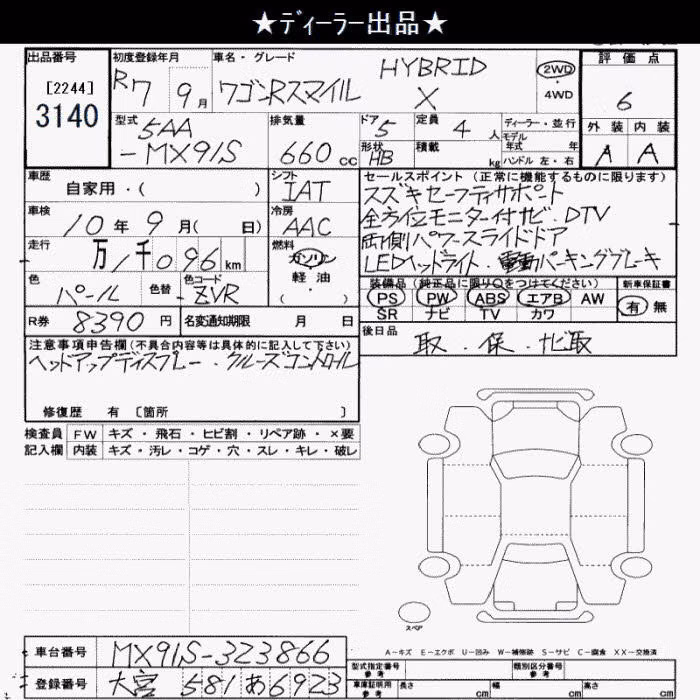 ★ディーラー出品★
出品番号
[2244]
3140
初度登録年月
R7 9月
車名・グレード
ワゴンRスマイル
HYBRID
X
2WD
4WD
評価点
6
外装 内装
A A
型式
5AA
-MX91S
排気量
660 cc
ドア 5
形状 HB
定員 4 人
積載 kg
ディーラー・並行
モデル
年式 年
ハンドル 左・右
車歴
自家用・( )
シフト
IAT
セールスポイント (正常に機能するものに限ります)
スズキセーフティサポート
全方位モニター付ナビ・DTV
両側パワースライドドア
LEDヘッドライト・電動パーキングブレーキ
車検
10年 9月( 日)
冷房
AAC
走行
万 1千096 km
燃料
ガソリン
・
軽油
( )
色
パール
色替
色コード
ZVR
装備品 (純正品に限り○をつけてください)
PS PW ABS エアB AW
SR ナビ TV カワ
新車保証書
有 無
R券 8390 円
名変通知期限 月 日
後日品
取・保・ナビ取
注意事項申告欄(不具合内容等は具体的に記入して下さい)
ヘッドアップディスプレー・クルーズコントロール
修復歴 有 〔箇所 〕
検査員
記入欄
FW キズ・飛石・ヒビ割・リペア跡・×要
内装 キズ・汚レ・コゲ・穴・スレ・キレ・破レ
スペア
A-キズ E-エクボ U-凹み W-補修跡 S-サビ C-腐食 XX-交換済
車台番号 MX91S-323866
登録番号 大宮 581 あ6923
型式指定番号
参考
類別区分番号
参考
車庫証明用
参考
長さ cm
幅 cm
高さ cm